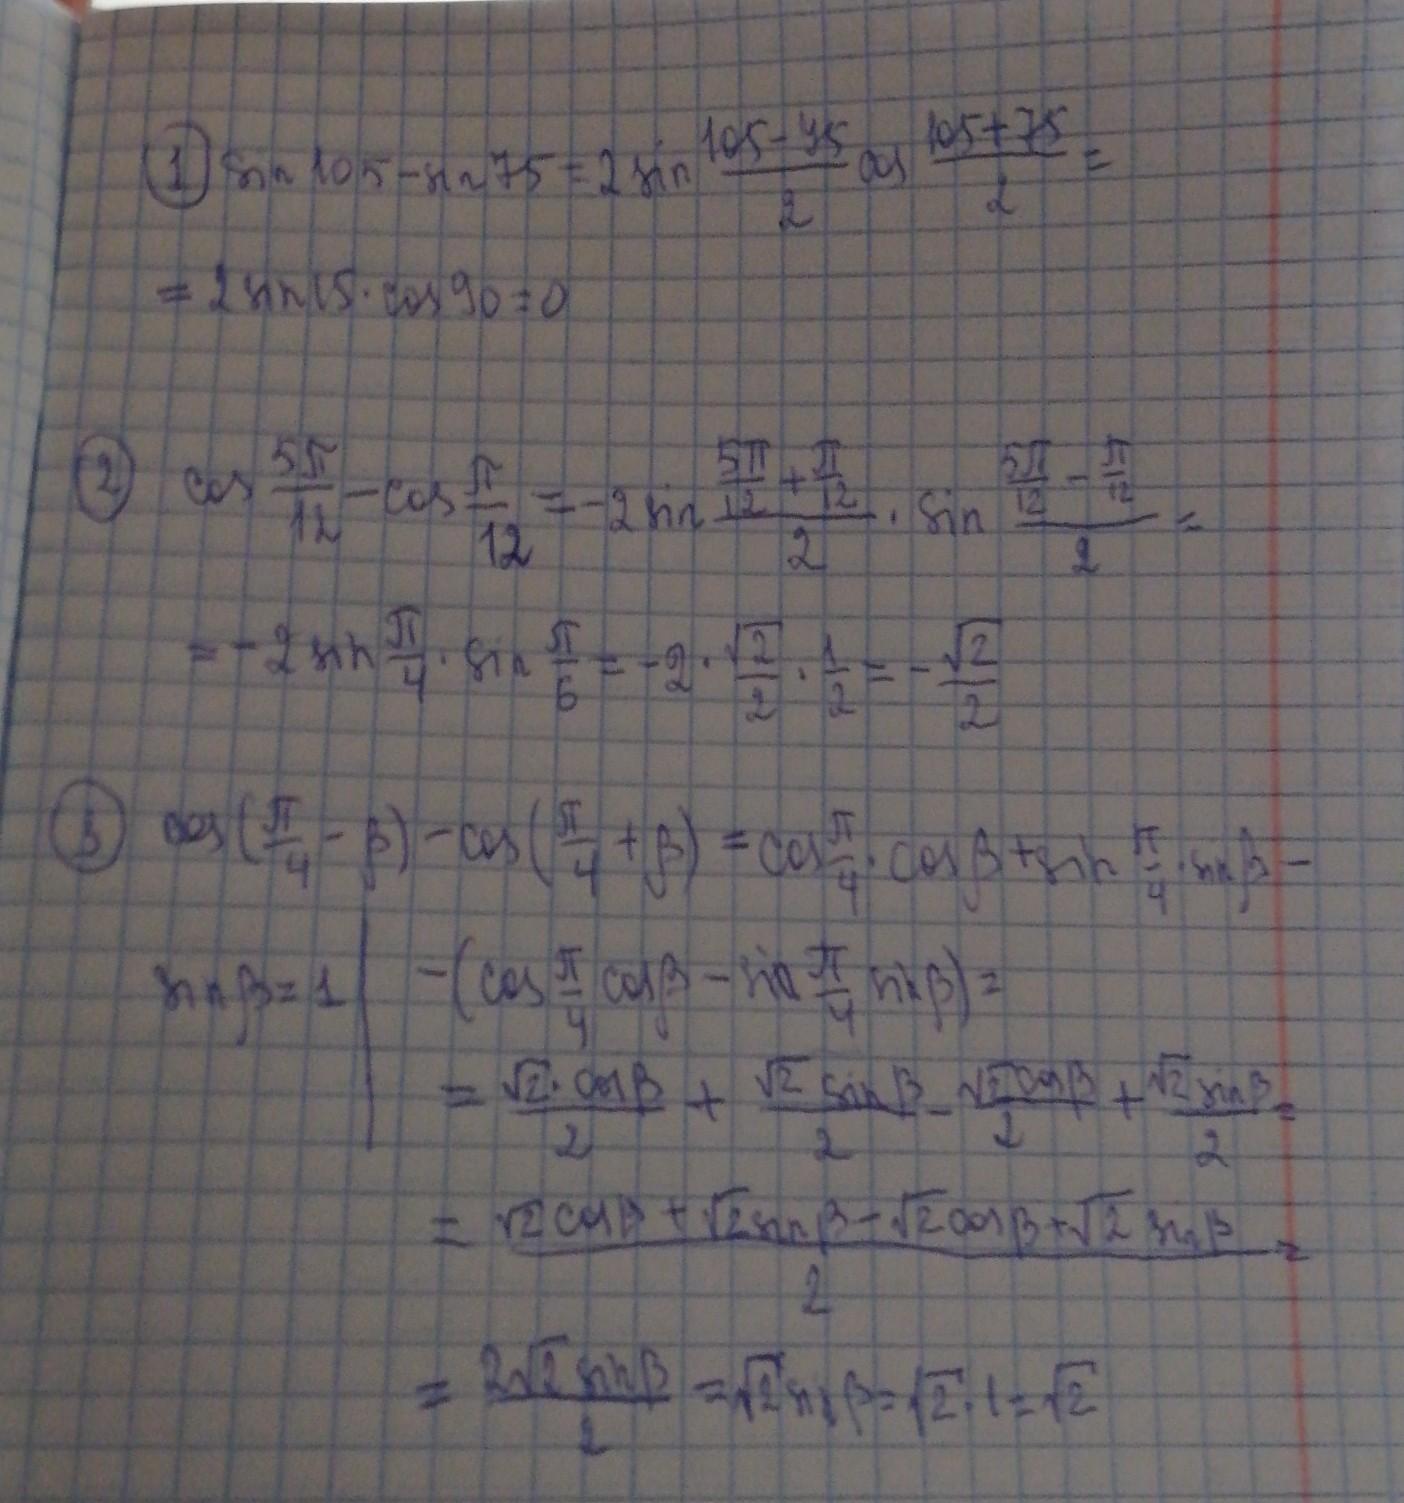 ① sin 105 - sin 75 = 2 sin (105 - 75)/2 cos (105 + 75)/2 =
= 2 sin 15 · cos 90 = 0
② cos 5π/12 - cos π/12 = -2 sin (5π/12 + π/12)/2 · sin (5π/12 - π/12)/2 =
= -2 sin π/4 · sin π/6 = -2 · √2/2 · 1/2 = -√2/2
③ cos(π/4 - β) - cos(π/4 + β) = cos π/4 · cos β + sin π/4 · sin β -
sin β = 1 | - (cos π/4 cos β - sin π/4 sin β) =
= √2 · cos β/2 + √2 sin β/2 - √2 cos β/2 + √2 sin β/2 =
= (√2 cos β + √2 sin β - √2 cos β + √2 sin β)/2 =
= 2√2 sin β/2 = √2 sin β = √2 · 1 = √2